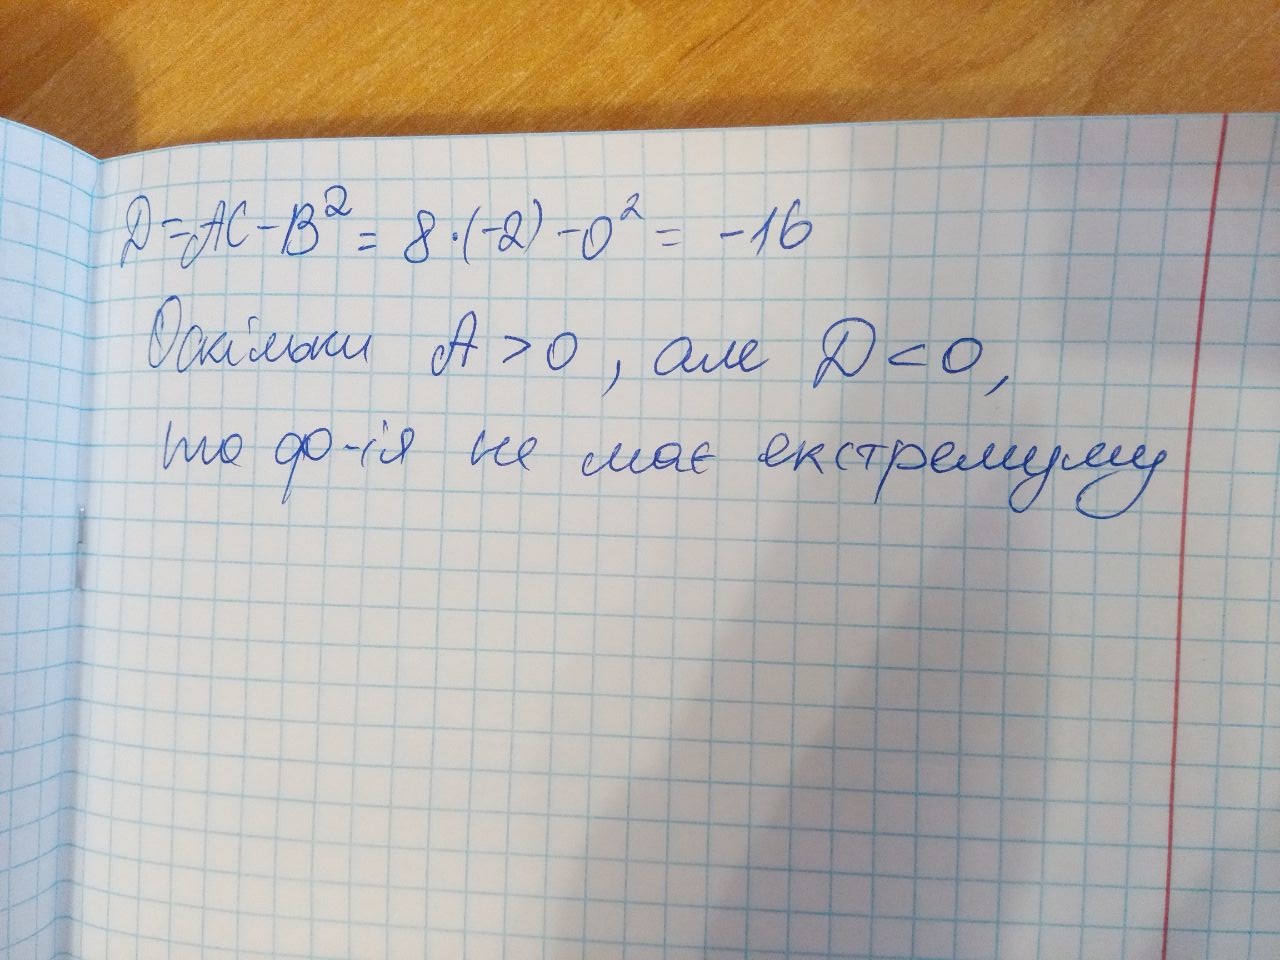 D=AC-B² = 8·(-2)-0² = -16
Оскільки A>0, але D<0,
то ф-ія не має екстремуму